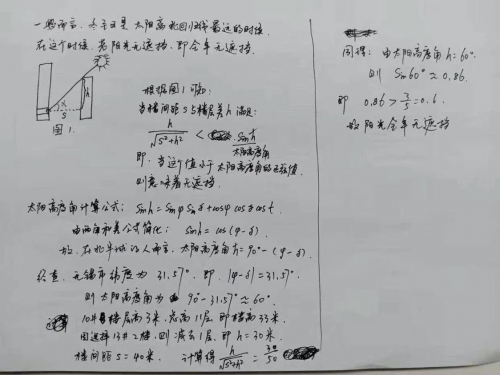 一般而言，冬至日是太阳离北回归线最远的时候
在这个时候，若阳光无遮挡，即全年无遮挡
h
s
图1
根据图1可知：
当楼间距s与楼层差h满足：
h/√(s²+h²) < sin h
太阳高度角
即，当这个值小于太阳高度角的正弦值
则意味着无遮挡
太阳高度角计算公式：sinh = sinφ sinδ + cosφ cosδ cost.
由两角和差公式简化：sinh = cos(φ-δ)
故，在北半球的人而言，太阳高度角h=90°-(φ-δ)
经查，无锡市纬度为31.57°，即，|φ-δ|=31.57°.
则太阳高度角为 90°-31.57°≈60°.
10#楼层高3米，总高11层，即楼高33米.
因选择13#2楼，则减去1层，即h=30米
楼间距s=40米， 计算得 h/√(s²+h²) = 30/50
同理：由太阳高度角h=60°
则 sin60°≈0.86.
即 0.86 > 3/5 = 0.6.
故阳光全年无遮挡